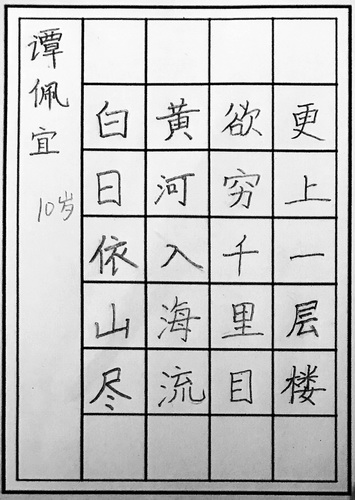 谭佩宜
10岁
白日依山尽
黄河入海流
欲穷千里目
更上一层楼